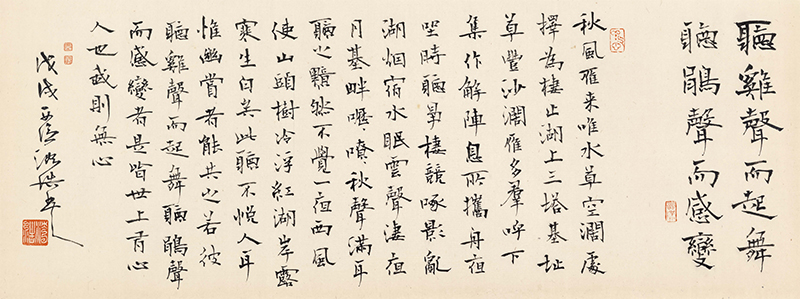 聽雞聲而起舞
聽鵑聲而感變
秋風雁来唯水草空濶處
擇為棲止湖上三塔基址
草豐沙濶雁多羣呼下
集作解陣息所攜舟夜
坐時聽爭棲競啄影亂
湖烟宿水眠雲聲凄夜
月基畔嚦〻嘹〻秋聲滿耳
聽之黯然不覺一夜西風
使山頭樹冷浮紅湖岸露
寒生白矣此聽不悦人耳
惟幽賞者能共之若彼
聽雞聲而起舞聽鵑聲
而感變者是皆世上有心
人也我則無心
戊戌夏